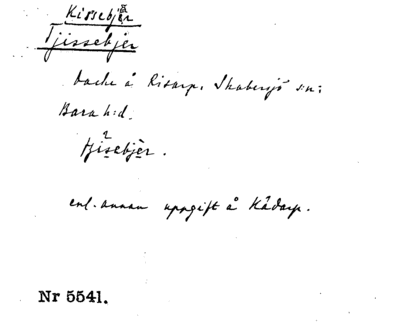 Kissebjär
Tjissebjer
backe å Risarp. Skabersjö s:n;
Bara h:d.
tjisebjer.
enl. annan uppgift å Kådarp.
Nr 5541.